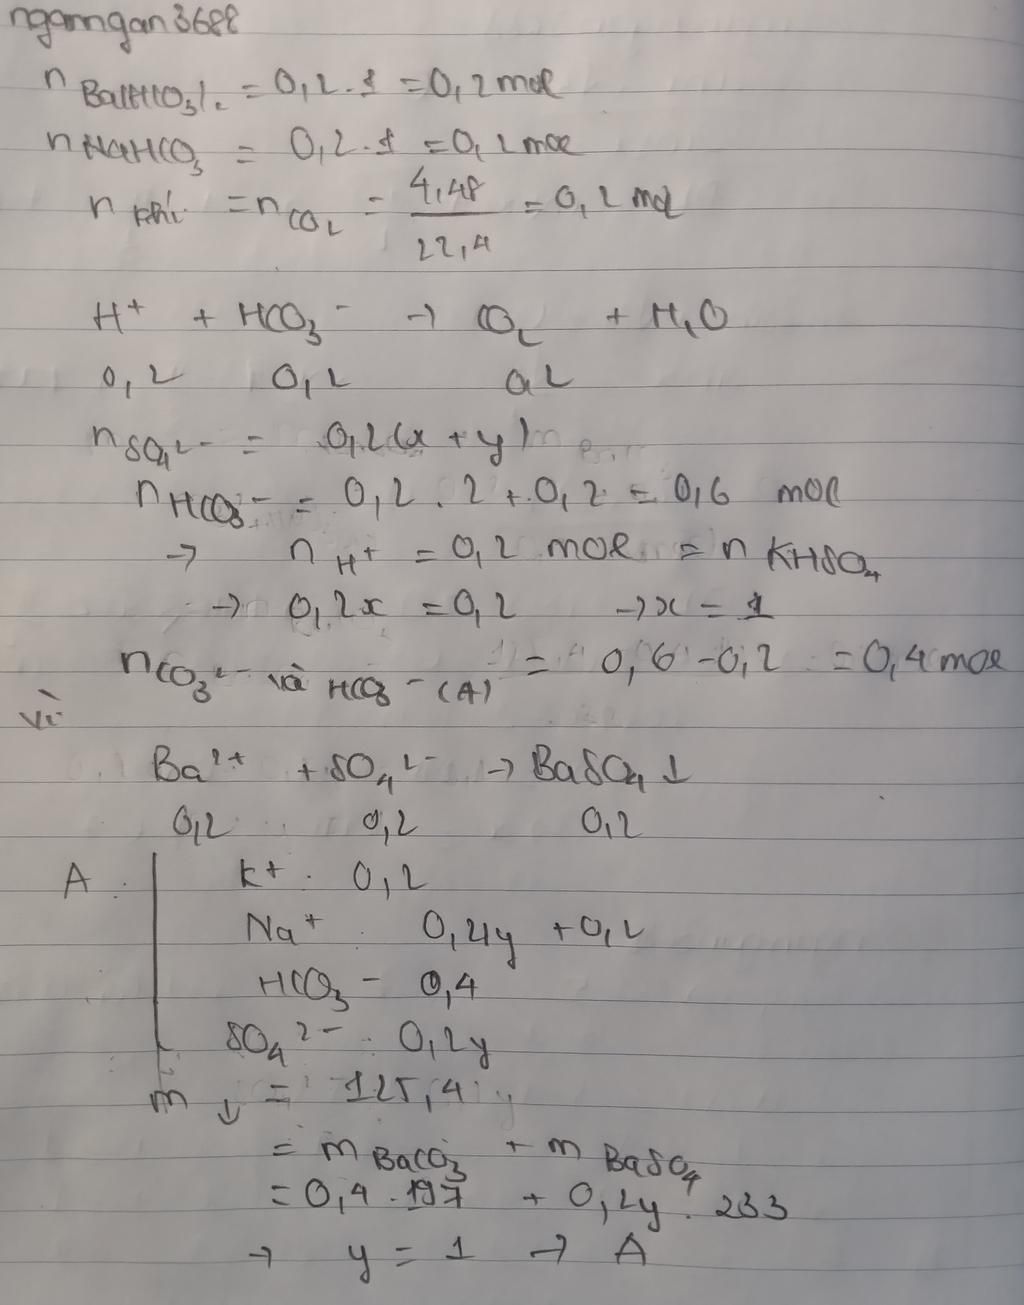 ngamngan3688
n Ba(HCO3)2 = 0,2.1 = 0,2 mol
n NaHCO3 = 0,2.1 = 0,2 mol
n khí = n CO2 = 4,48/22,4 = 0,2 mol
H+ + HCO3- → CO2 + H2O
0,2 0,2 0,2
n SO42- = 0,2(x + y)
n HCO3- = 0,2.2 + 0,2 = 0,6 mol
→ n H+ = 0,2 mol = n KHSO4
→ 0,2x = 0,2 → x = 1
n CO32- và HCO3- (A) = 0,6 - 0,2 = 0,4 mol
Vì
Ba2+ + SO42- → BaSO4 ↓
0,2 0,2 0,2
A: K+: 0,2
Na+: 0,4y + 0,2
HCO3- 0,4
SO42-: 0,2y
m↓ = 125,4
= m BaCO3 + m BaSO4
= 0,4.197 + 0,2y.233
→ y = 1 → A